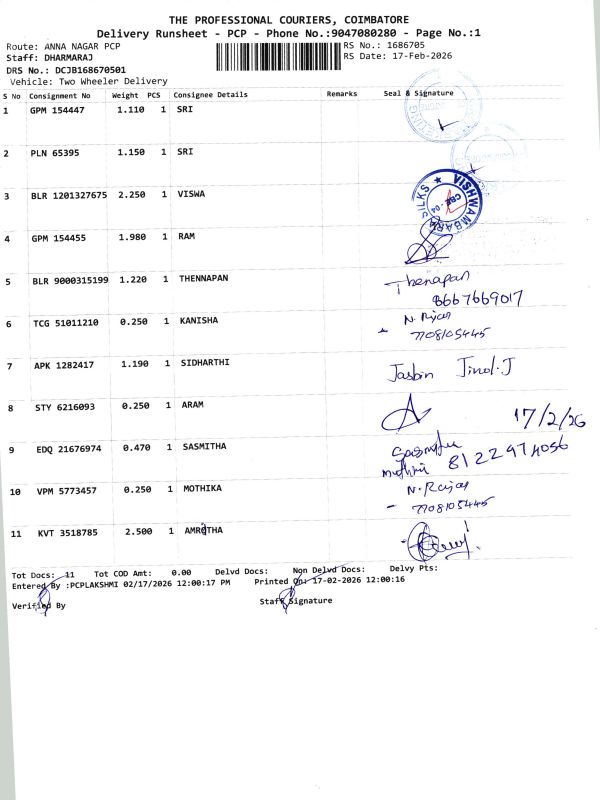 THE PROFESSIONAL COURIERS, COIMBATORE
Delivery Runsheet - PCP - Phone No.:9047080280 - Page No.:1
Route: ANNA NAGAR PCP
RS No.: 1686705
Staff: DHARMARAJ
RS Date: 17-Feb-2026
DRS No.: DCJB168670501
Vehicle: Two Wheeler Delivery
S No Consignment No Weight PCS Consignee Details Remarks Seal & Signature
1 GPM 154447 1.110 1 SRI
2 PLN 65395 1.150 1 SRI
3 BLR 1201327675 2.250 1 VISWA
VISHWAMBARA SILKS ★ CBE - 04
4 GPM 154455 1.980 1 RAM
5 BLR 9000315199 1.220 1 THENNAPAN
Thenapan
8667669017
6 TCG 51011210 0.250 1 KANISHA
7708105445
7 APK 1282417 1.190 1 SIDHARTHI
Jasbin Jinol.J
8 STY 6216093 0.250 1 ARAM
17/2/26
9 EDQ 21676974 0.470 1 SASMITHA
8122974056
10 VPM 5773457 0.250 1 MOTHIKA
7708105445
11 KVT 3518785 2.500 1 AMRUTHA
Tot Docs: 11 Tot COD Amt: 0.00 Delvd Docs: Non Delvd Docs: Delvy Pts:
Entered By :PCPLAKSHMI 02/17/2026 12:00:17 PM Printed On: 17-02-2026 12:00:16
Verified By
Staff Signature